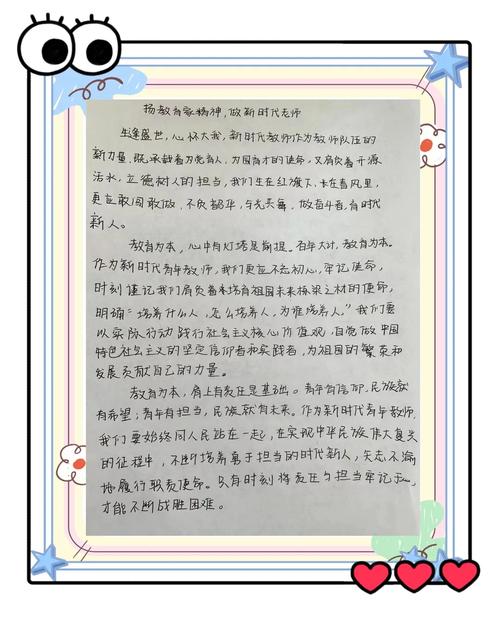 扬教育家精神，做新时代老师
生逢盛世，心怀大我，新时代教师作为教师队伍的
新力量，既承载着为党育人，为国育才的使命，又肩负着开源
活水，立德树人的担当，我们生在红旗下，长在春风里，
更应敢闯敢做，不负韶华，与光共舞，做奋斗者，育时代
新人。
教育为本，心中有灯塔是前提。百年大计，教育为本。
作为新时代青年教师，我们更应不忘初心，牢记使命，
时刻谨记我们肩负着培育祖国未来栋梁之材的使命，
明确“培养什么人，怎么培养人，为谁培养人，”我们要
以实际行动践行社会主义核心价值观，自觉做中国
特色社会主义的坚定信仰者和实践者，为祖国的繁荣和
发展贡献自己的力量。
教育为本，肩上有责任是基础。青年有信仰，民族就
有希望；青年有担当，民族就有未来。作为新时代青年教师，
我们要始终同人民站在一起，在实现中华民族伟大复兴
的征程中，不断培养勇于担当的时代新人，矢志不渝
地履行职责使命。只有时刻将责任与担当牢记于心，
才能不断战胜困难。